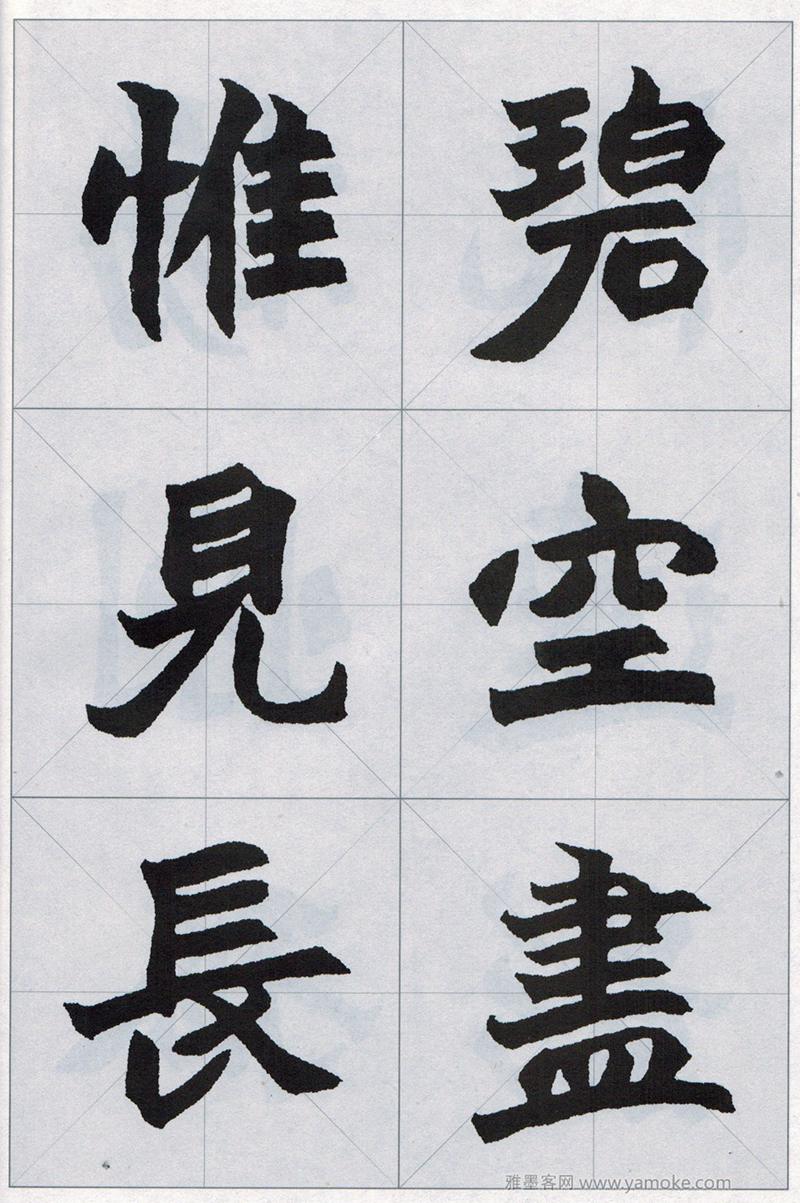 碧空盡
惟見長
雅墨客网 www.yamoke.com